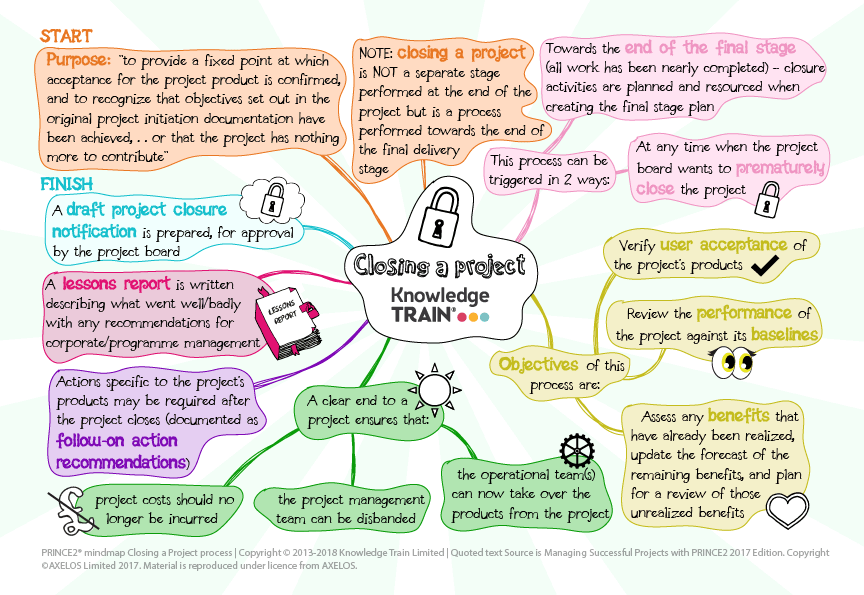 START
Purpose: "to provide a fixed point at which
acceptance for the project product is confirmed,
and to recognize that objectives set out in the
original project initiation documentation have
been achieved, . . or that the project has nothing
more to contribute"
NOTE: closing a project
is NOT a separate stage
performed at the end of the
project but is a process
performed towards the end of
the final delivery
stage
Towards the end of the final stage
(all work has been nearly completed) – closure
activities are planned and resourced when
creating the final stage plan
This process can be
triggered in 2 ways:
At any time when the project
board wants to prematurely
close the project
Closing a project
Knowledge
TRAIN®
Verify user acceptance of
the project's products
Review the performance of
the project against its baselines
Objectives of this
process are:
Assess any benefits that
have already been realized,
update the forecast of the
remaining benefits, and plan
for a review of those
unrealized benefits
A clear end to a
project ensures that:
the operational team(s)
can now take over the
products from the project
the project management
team can be disbanded
project costs should no
longer be incurred
£
Actions specific to the project's
products may be required after
the project closes (documented as
follow-on action
recommendations)
A lessons report is written
describing what went well/badly
with any recommendations for
corporate/programme management
LESSONS
REPORT
FINISH
A draft project closure
notification is prepared, for approval
by the project board
PRINCE2® mindmap Closing a Project process | Copyright © 2013-2018 Knowledge Train Limited | Quoted text Source is Managing Successful Projects with PRINCE2 2017 Edition. Copyright
©AXELOS Limited 2017. Material is reproduced under licence from AXELOS.